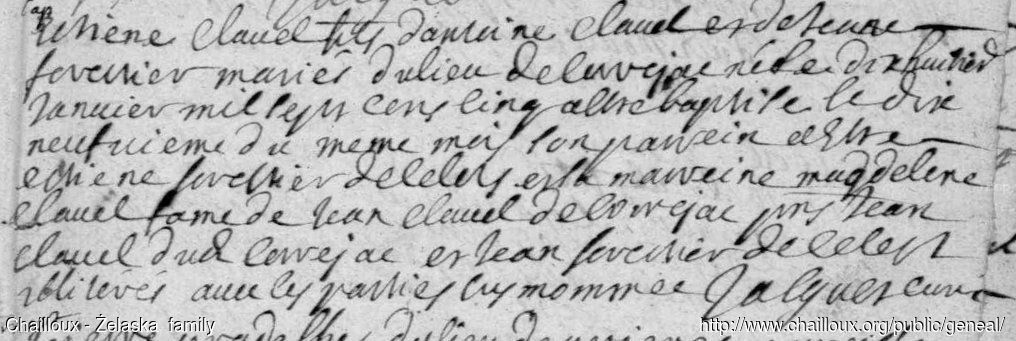 Estiene Clavel fils d'antoine Clavel et de Jeane
forestier mariés du lieu de Corejac né le dix huitied
Janvier mil sept cens cinq a estre baptise le dix
neufvieme du meme mois son parrein a estre
estiene forestier de et sa marreine magdelene
Clavel fame de Jean Clavel de Corejac pns Jean
Clavel dud Corejac et Jean forestier de
illiterés avec les parties sus nommée Jalguet cur
Chailloux - Żelaska family
http://www.chailloux.org/public/geneal/